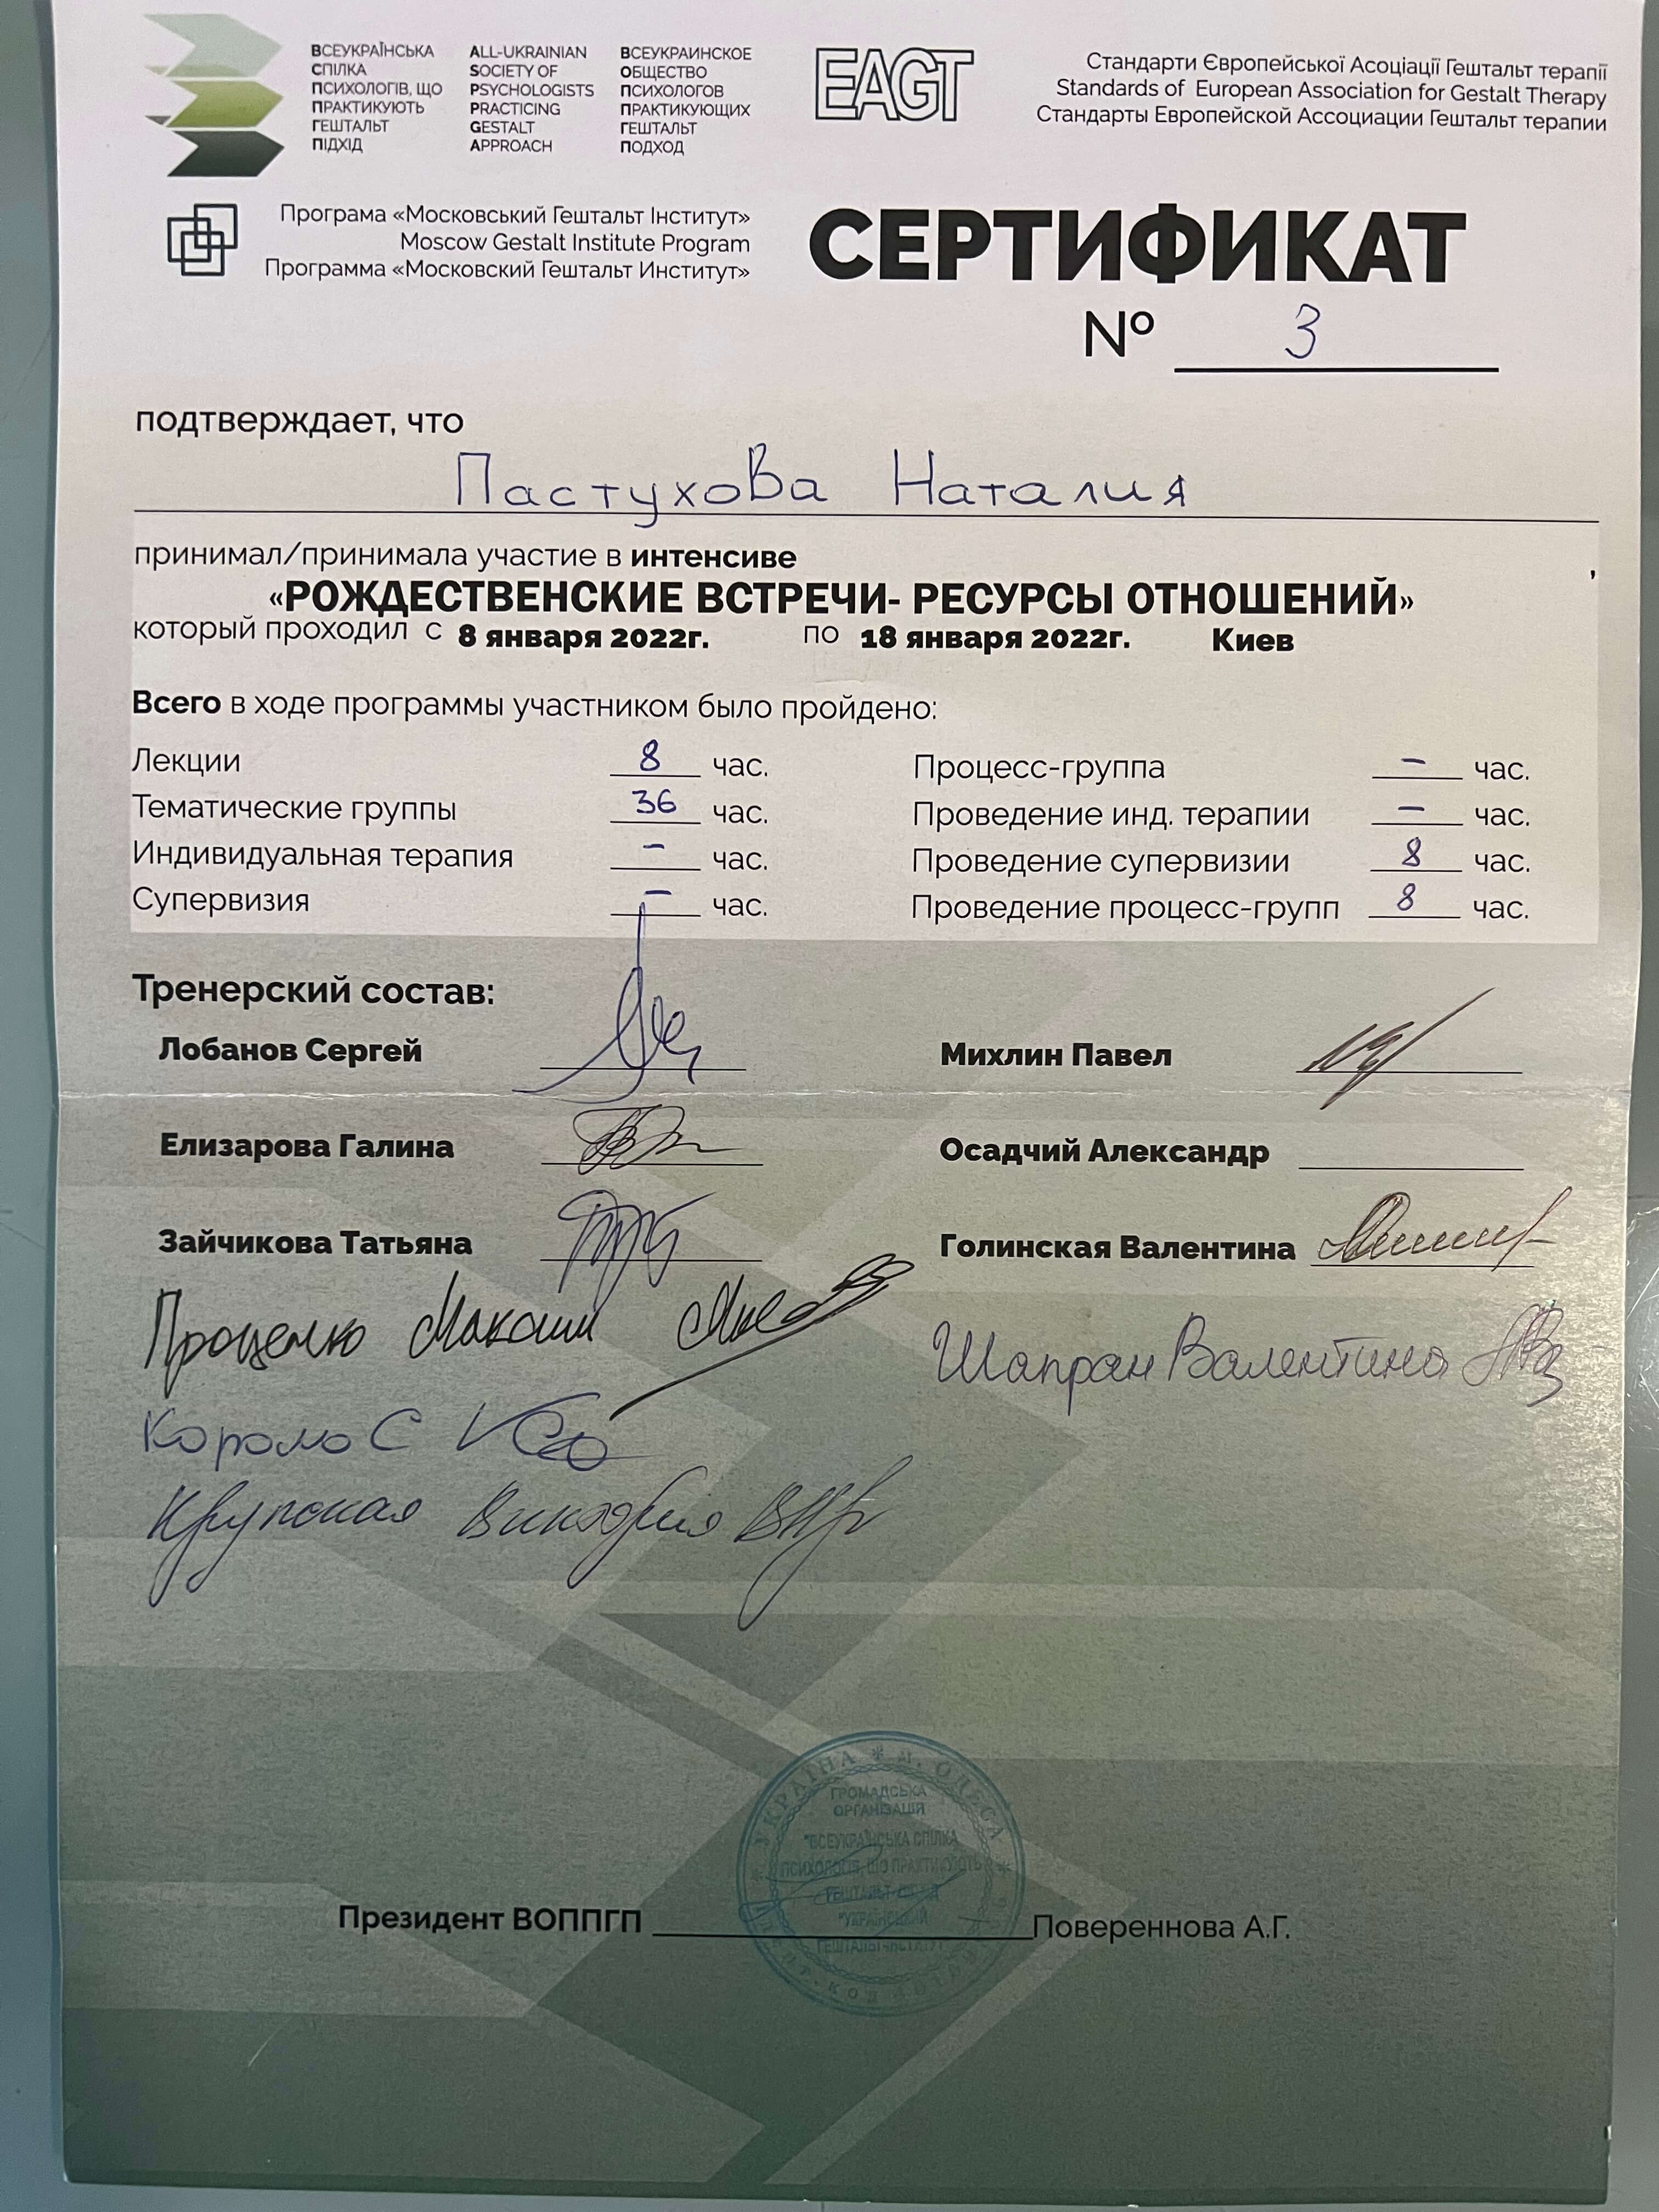 ВСЕУКРАЇНСЬКА
СПІЛКА
ПСИХОЛОГІВ, ЩО
ПРАКТИКУЮТЬ
ГЕШТАЛЬТ
ПІДХІД
ALL-UKRAINIAN
SOCIETY OF
PSYCHOLOGISTS
PRACTICING
GESTALT
APPROACH
ВСЕУКРАИНСКОЕ
ОБЩЕСТВО
ПСИХОЛОГОВ
ПРАКТИКУЮЩИХ
ГЕШТАЛЬТ
ПОДХОД
EAGT
Стандарти Європейської Асоціації Гештальт терапії
Standards of European Association for Gestalt Therapy
Стандарты Европейской Ассоциации Гештальт терапии
Програма «Московський Гештальт Інститут»
Moscow Gestalt Institute Program
Программа «Московский Гештальт Институт»
СЕРТИФИКАТ
№ 3
подтверждает, что
Пастухова Наталия
принимал/принимала участие в интенсиве ,
«РОЖДЕСТВЕНСКИЕ ВСТРЕЧИ- РЕСУРСЫ ОТНОШЕНИЙ»
который проходил с 8 января 2022г. по 18 января 2022г. Киев
Всего в ходе программы участником было пройдено:
Лекции 8 час. Процесс-группа – час.
Тематические группы 36 час. Проведение инд. терапии – час.
Индивидуальная терапия – час. Проведение супервизии 8 час.
Супервизия – час. Проведение процесс-групп 8 час.
Тренерский состав:
Лобанов Сергей Михлин Павел
Елизарова Галина Осадчий Александр
Зайчикова Татьяна Голинская Валентина
Максим
Шапран Валентина
Крупская Виктория
УКРАЇНА * м. ОДЕСА
ГРОМАДСЬКА
ОРГАНІЗАЦІЯ
"ВСЕУКРАЇНСЬКА СПІЛКА
ПСИХОЛОГІВ, ЩО ПРАКТИКУЮТЬ
Президент ВОППГП Повереннова А.Г.